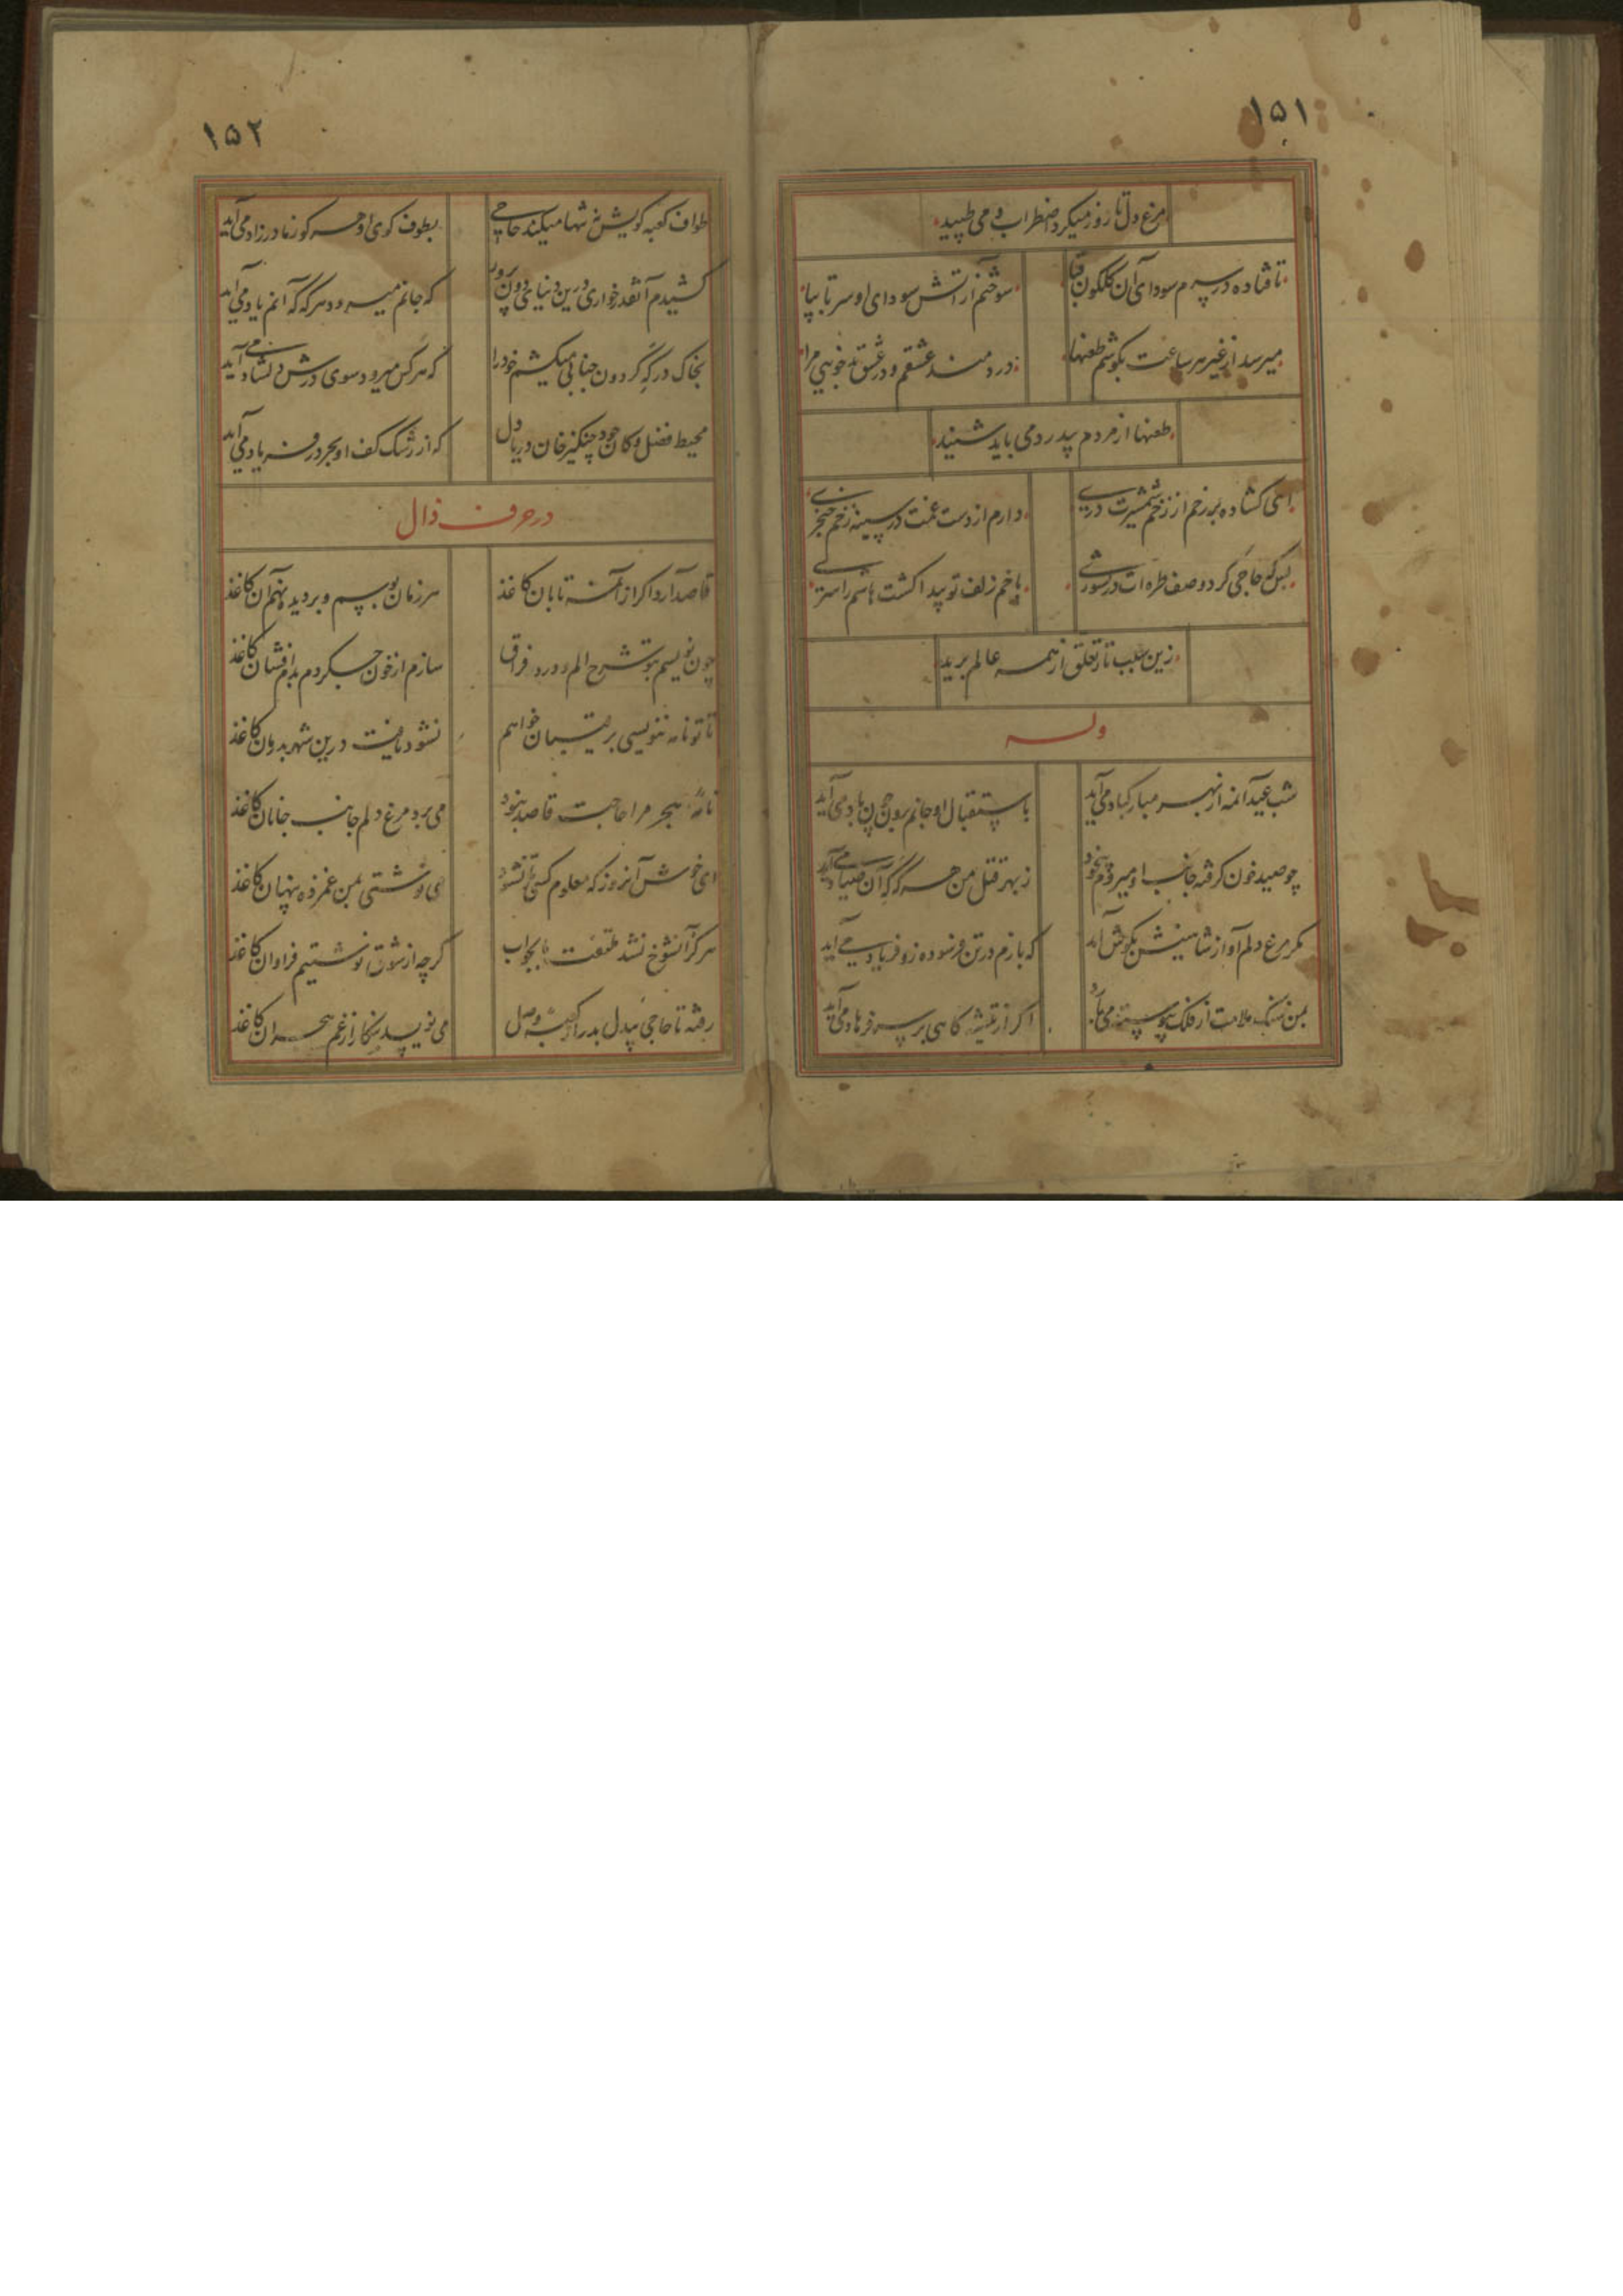 ۱۵۱
مرغ دل تا روز میکرد اضطراب و می طپید
تا فتاده در سرم سودای آن گلگون قبا
سوختم از آتش سودای او سر تا بپا
میرسد از غیر هر ساعت بگوشم طعنها
دردمند عشقم و در عشق خوبی مرا
طعنها از مردم بیدرد می باید شنید
ای گشاده بر رخم از زخم شمشیرت دری
دارم از دست غمت در سینه زخم خنجری
بس که حاجی کرد وصف طره ات در
با خم زلف تو پیدا گشت
زین سبب تار تعلق از همه عالم برید
وله
شب عید آنمه از بهر مبارکباد می آید
باستقبال او جانم برون چون باد می آید
چو صید خون گرفته جانب او میروم بیخود
ز بهر قتل من هر گه که آن صیاد می آید
مگر مرغ دلم آواز شاهینش بگوش آمد
که بازم در تن فرسوده زو فریاد می آید
بمن سنگ ملامت از فلک پیوسته می بارد
اگر از تیشه گاهی بر سر فرهاد می آید
۱۵۲
طواف کعبه کویش نه تنها میکند حاجی
بطوف کوی او هر کو ز مادر زاد می آید
کشیدم آنقدر خواری درین دنیای دون پرور
که جانم میرود هر گه که آنم یاد می آید
بخاک درگه گردون جنابی میکشم خود را
که هر کس میرود سوی درش دلشاد می آید
محیط فضل و کان جود چنگیز خان دریا دل
که از رشک کف او بحر در فریاد می آید
در حرف ذال
قاصد آرد اگر از آن مه تابان کاغذ
هر زمان بوسم و بر دیده نهم آن کاغذ
چون نویسم بتو شرح الم و درد فراق
سازم از خون جگر دم بدم افشان کاغذ
تا تو نامه ننویسی برقیبان خواهم
نشود یافت درین شهر بدوران کاغذ
نامه هجر مرا حاجت قاصد نبود
می برد مرغ دلم جانب جانان کاغذ
ای خوش آنروز که معلوم کسی تا نشود
می نوشتی بمن غمزده پنهان کاغذ
هرگز آنشوخ نشد ملتفت ما بجواب
گرچه از شوق نوشتیم فراوان کاغذ
رفته تا حاجی بیدل بدر از کعبه وصل
می نویسد بنگار از غم هجران کاغذ